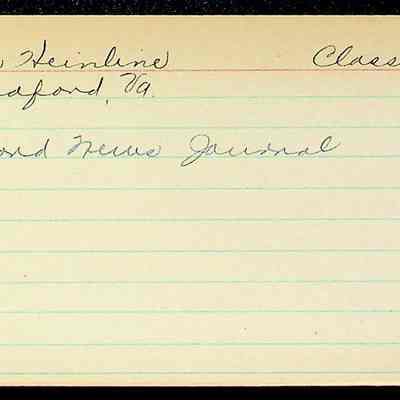 Heinline Class
dford, Va.
ord News Journal